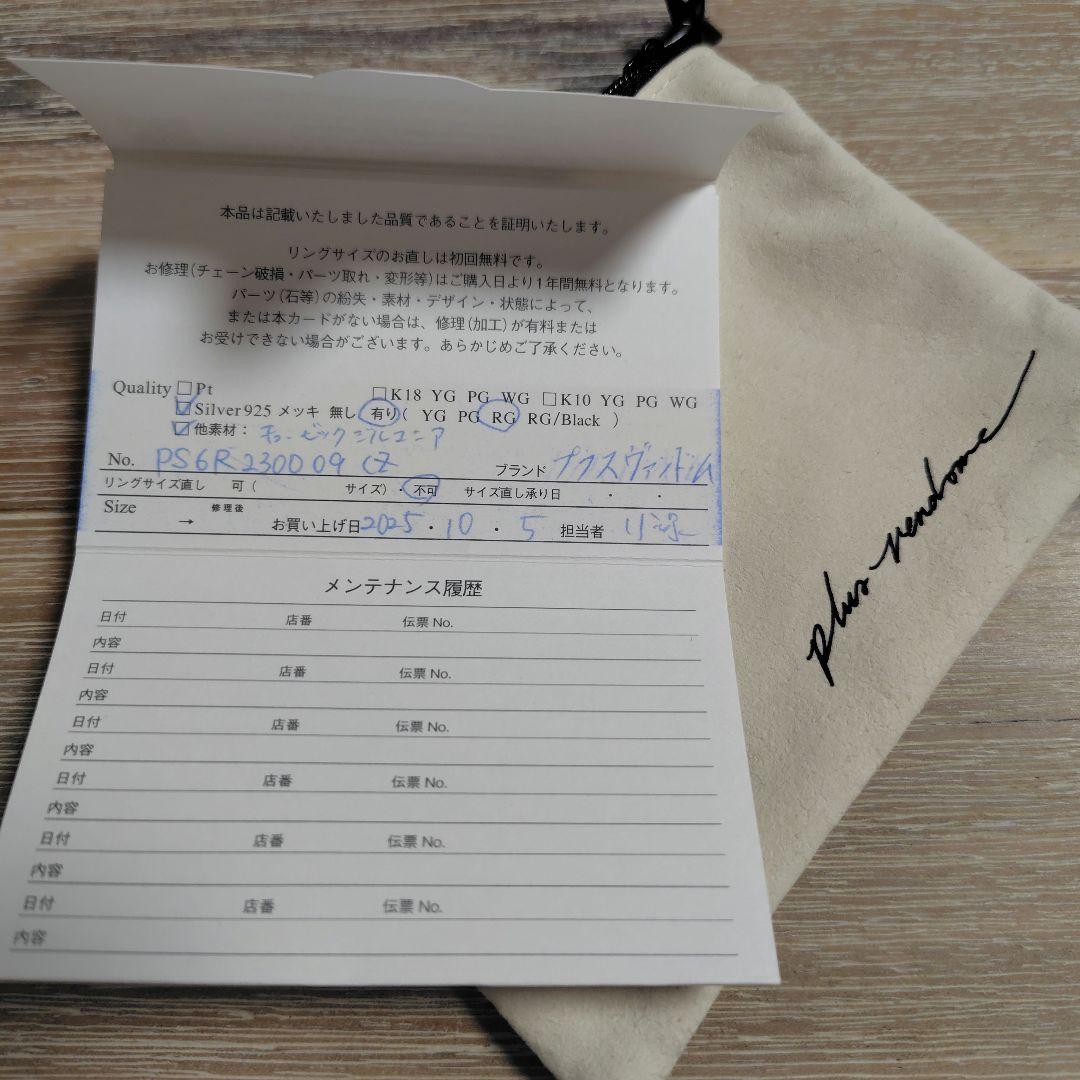 本品は記載いたしました品質であることを証明いたします。
リングサイズのお直しは初回無料です。
お修理(チェーン破損・パーツ取れ・変形等)はご購入日より1年間無料となります。
パーツ(石等)の紛失・素材・デザイン・状態によって、
または本カードがない場合は、修理(加工)が有料または
お受けできない場合がございます。あらかじめご了承ください。
Quality □Pt □K18 YG PG WG □K10 YG PG WG
☑Silver925 メッキ 無し 有り( YG PG RG RG/Black )
☑他素材: キュービックジルコニア
No. PS6R230009 CZ ブランド プラスヴァンドーム
リングサイズ直し 可( サイズ)・不可 サイズ直し承り日 ・ ・
Size → 修理後 お買い上げ日 2025・10・5 担当者
メンテナンス履歴
日付 店番 伝票 No.
内容
日付 店番 伝票 No.
内容
日付 店番 伝票 No.
内容
日付 店番 伝票 No.
内容
日付 店番 伝票 No.
内容
日付 店番 伝票 No.
内容
plus vendome